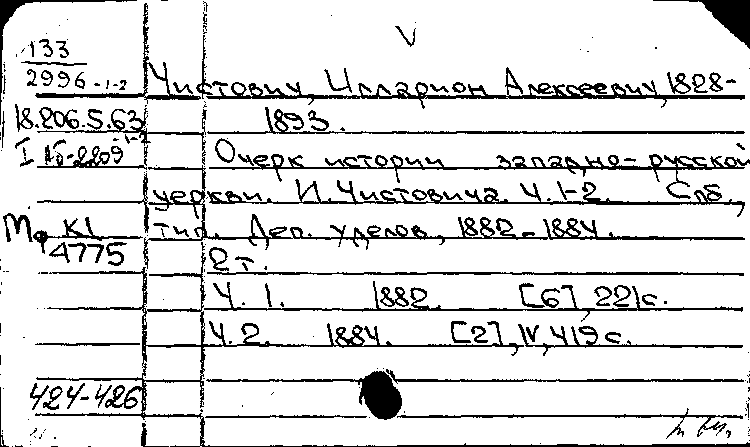 V
133
2996-1-2
Чистович, Илларион Алексеевич, 1828-
18.206.5.63
1893.
Очерк истории западно-русской
церкви. И. Чистовича. Ч. 1-2. Спб.,
Мф K1
4775
тип. Деп. уделов, 1882-1884.
2 т.
Ч. 1. 1882. [6], 221 с.
Ч. 2. 1884. [2], IV, 419 с.
424-426